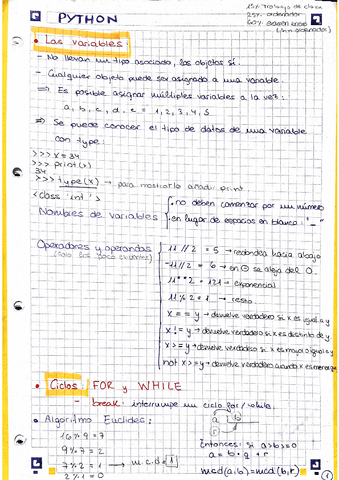 PYTHON
15% Trabajo de clase
25% ordenador
60% examen
(sin ordenador)
• Las variables:
- No llevan un tipo asociado, los objetos sí.
- Cualquier objeto puede ser asignado a una variable.
⇒ Es posible asignar múltiples variables a la vez:
a, b, c, d, e = 1, 2, 3, 4, 5
⇒ Se puede conocer el tipo de datos de una variable
con type:
>>> x = 34
>>> print(x)
34
>>> type(x) → para mostrarlo añadir print
<class 'int'>
Nombres de variables
. no deben comenzar por un número
. en lugar de espacios en blanco: "_"
Operadores y operandos
11 // 2 = 5 → redondea hacia abajo
-11 // 2 = -6 → en ⊖ se aleja del 0.
11 ** 2 = 121 → exponencial
11 % 2 = 1 → resto
x == y → devuelve verdadero si x es igual a y
x != y → devuelve verdadero si x es distinto de y
x >= y → devuelve verdadero si x es mayor o igual a y
not x >= y → devuelve verdadero cuando x es menor que y
• Ciclos: FOR y WHILE
- break: interrumpe un ciclo for/while.
• Algoritmo Euclides:
16 % 9 = 7
9 % 7 = 2
7 % 2 = 1 → m.c.d = 1
2 % 1 = 0
a b
r
Entonces: si a > b >= 0
a = b · q + r
mcd(a,b) = mcd(b,r)
1